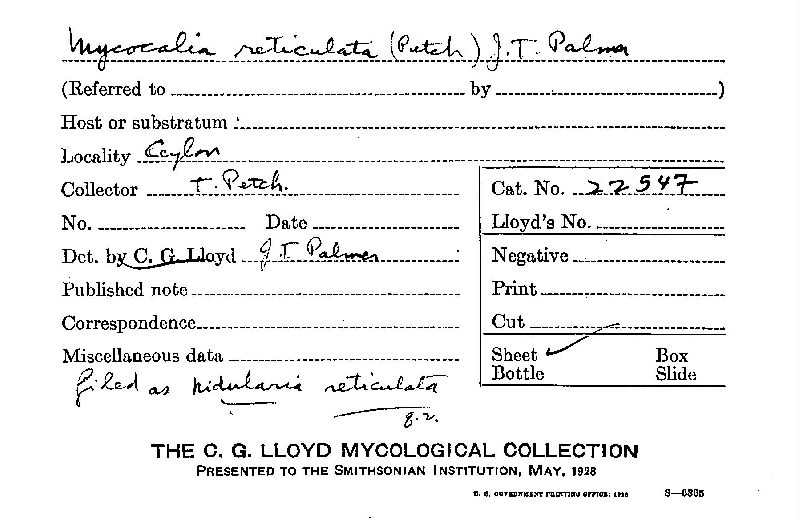 Mycocalia reticulata (Petch) J.T. Palmer
(Referred to by )
Host or substratum
Locality Ceylon
Collector T. Petch.
Cat. No. 22547
No. Date
Lloyd's No.
Det. by C. G. Lloyd J.T. Palmer
Negative
Published note
Print
Correspondence
Cut
Miscellaneous data
Sheet Box
Bottle Slide
filed as Nidularia reticulata
q.v.
THE C. G. LLOYD MYCOLOGICAL COLLECTION
PRESENTED TO THE SMITHSONIAN INSTITUTION, MAY, 1928
U. S. GOVERNMENT PRINTING OFFICE: